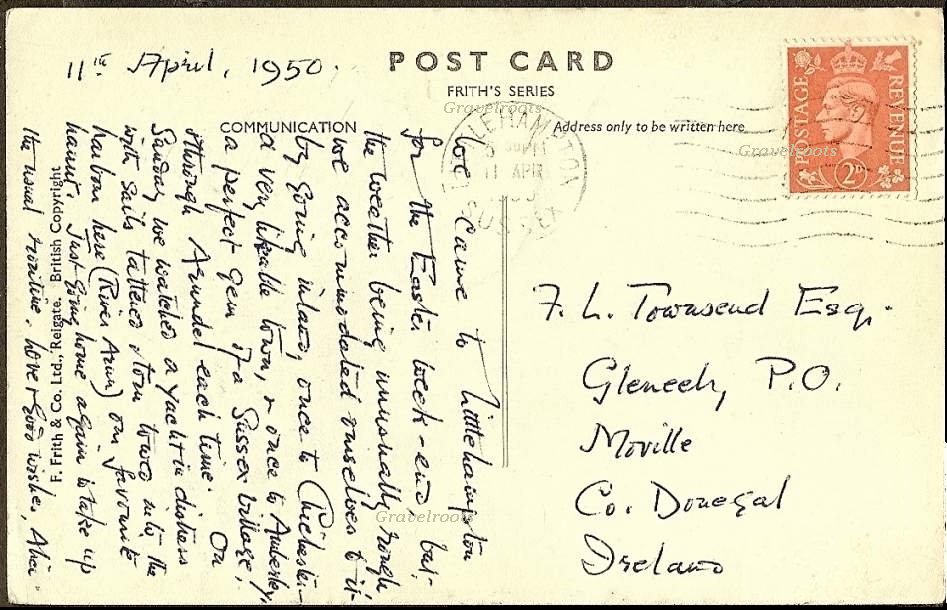 11th April, 1950.
POST CARD
FRITH'S SERIES
Gravelroots
COMMUNICATION
Address only to be written here
LITTLEHAMPTON
11 APR
SUSSEX
POSTAGE
REVENUE
2D
Gravelroots
We came to Littlehampton
for the Easter week-end, but
the weather being unusually rough
we accommodated ourselves to it
by going inland, once to Chichester –
a very likeable town, & once to Amberley,
a perfect gem of a Sussex village,
through Arundel each time. On
Sunday we watched a yacht in distress
with sails tattered & torn towed into the
harbour here (River Arun) our favourite
haunt. Just going home again to take up
the usual routine. Love & Good wishes,
F. Frith & Co. Ltd., Reigate. British Copyright
Gravelroots
F. L. Townsend Esq.
Gleneely P.O.
Moville
Co. Donegal
Ireland